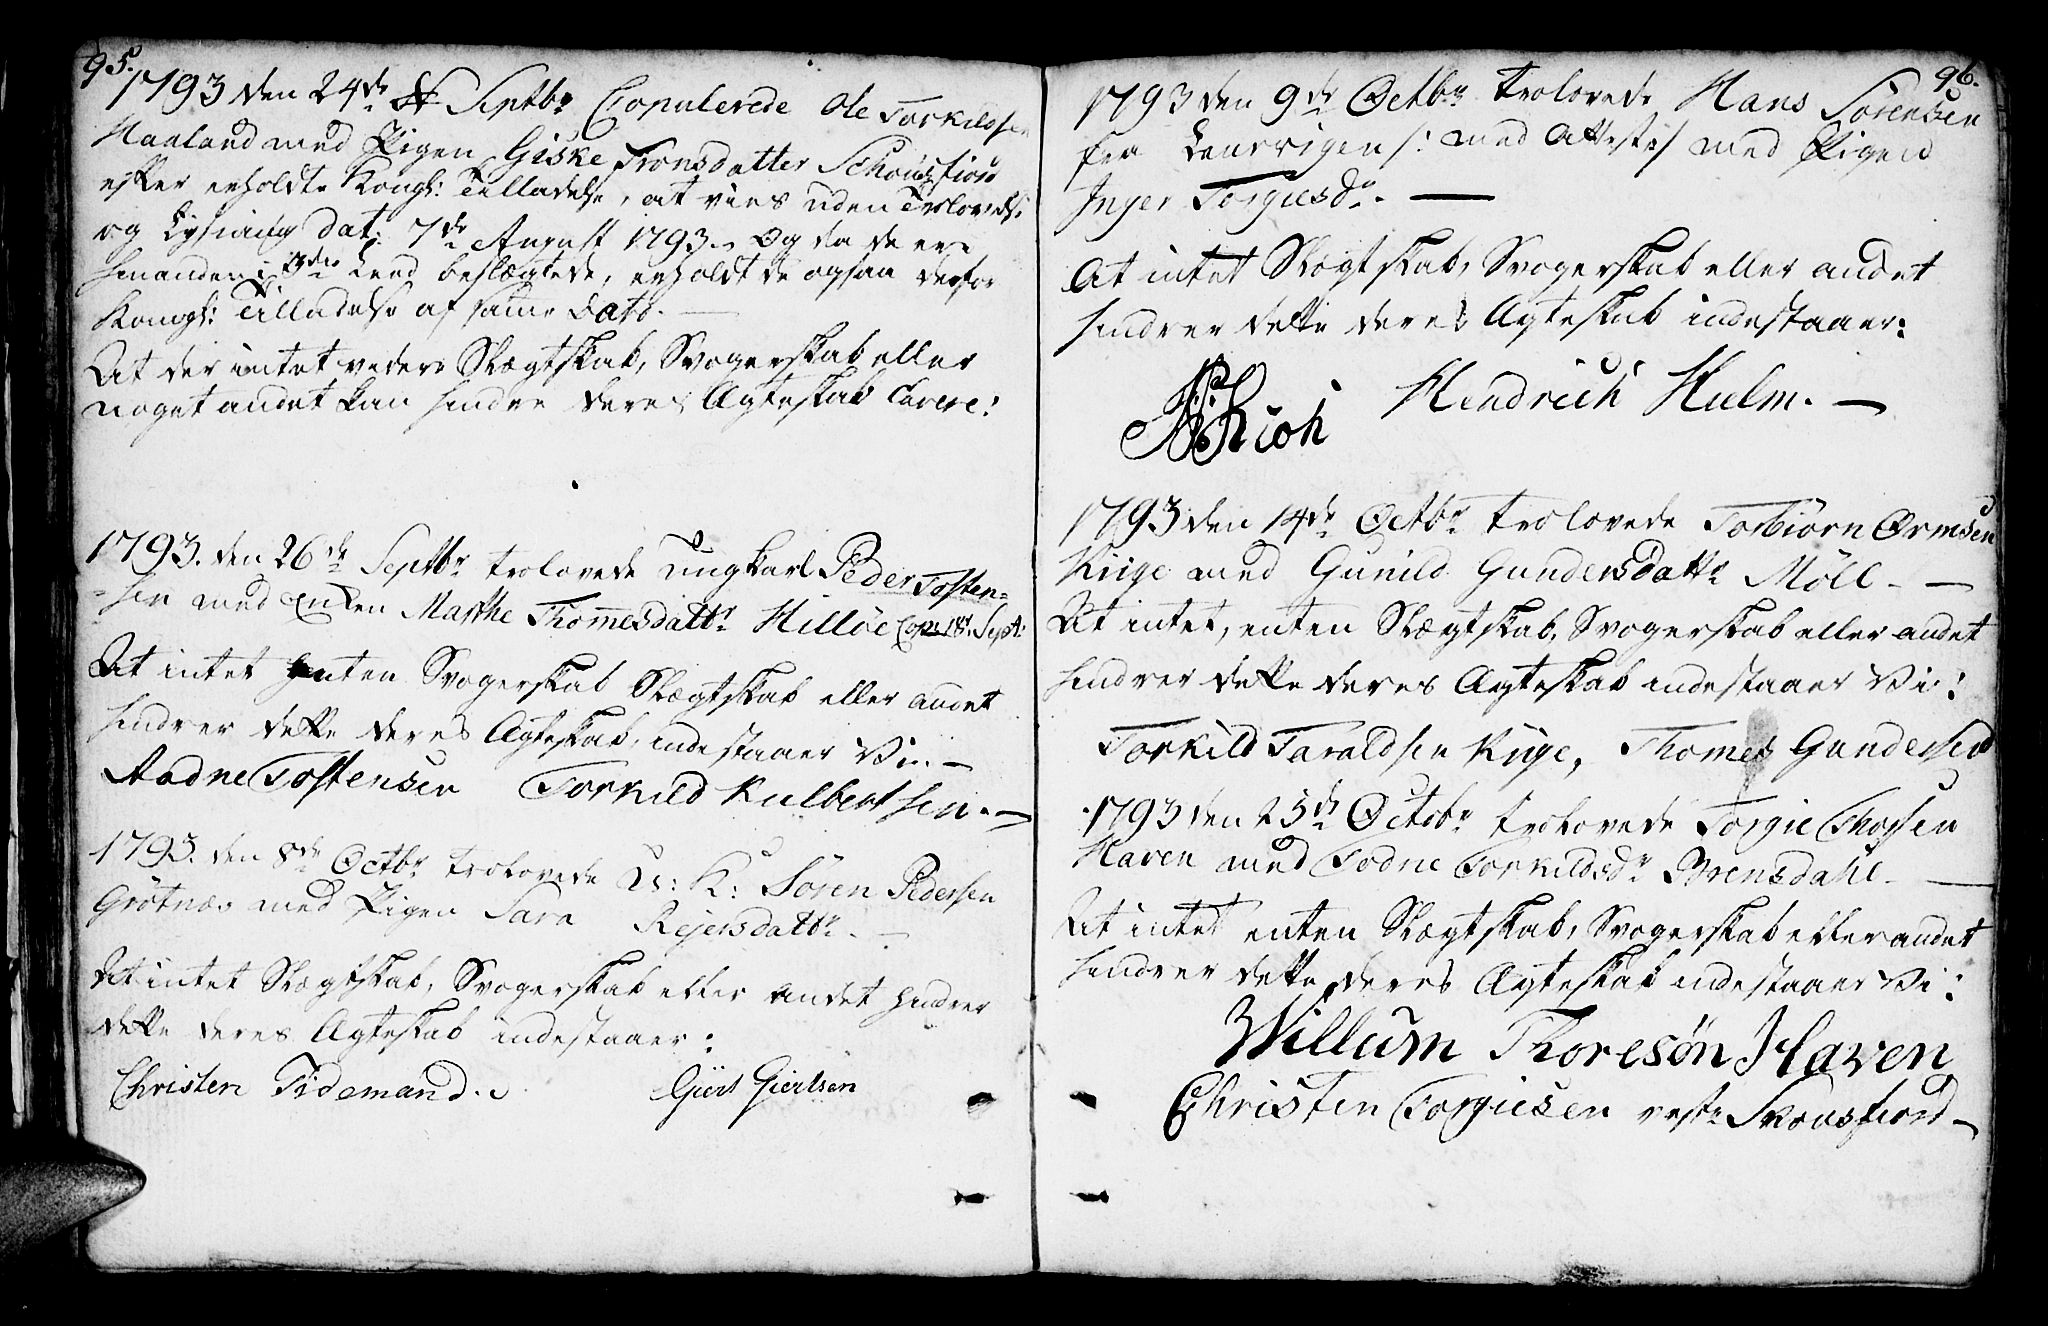 95.
1793 den 24de Septbr Copulerede Ole Torkildsen
Haaland med Pigen Giske Tronsdatter Schougfiord
efter erholdte Kongl: Tilladelse, at vies uden Trolovelse
og Lysning dat: 7de August 1793. Og da de ere
hinanden i 3die Leed beslægtede, erholdt de ogsaa derfor
Kongl: Tilladelse af samme Dato. —
At der intet videre Slægtskab, Svogerskab eller
noget andet kan hindre deres Ægteskab Cavere:
1793. den 26de Septbr trolovede Ungkarl Peder Tosten=
=sen med Enken Marthe Thomesdattr Hilløe Cop: 18t. Sept:
At intet enten Svogerskab Slægtskab eller andet
hindrer dette deres Ægteskab, indestaaer Vi. —
Aadne Tostensen Torkild Kulbertsen. —
1793. den 8de Octbr trolovede U: K: Sören Pedersen
Grötnæs med Pigen Sara Rejersdattr. —
At intet Slægtskab, Svogerskab eller andet hindrer
dette deres Ægteskab indestaaer:
Christen Tidemand. Giert Giertsen
96.
1793 den 9de Octbr trolovede Hans Sörensen
fra Laurvigen /: med Attest :/ med Pigen
Inger Torgiesdr. —
At intet Slægtskab, Svogerskab eller andet
hindrer dette deres Ægteskab indestaaer:
Hendrich Hulm. —
1793 den 14de Octbr trolovede Torbiörn Ormsen
Kiige med Gunild Gundersdattr Möll. —
At intet, enten Slægtskab, Svogerskab eller andet
hindrer dette deres Ægteskab indestaaer Vi:
Torkild Taraldsen Kiige, Thomes Gundersen
1793 den 25de Octobr trolovede Torgie Thorsen
Haven med Todne Torkildsdr Brensdahl. —
At intet enten Slægtskab, Svogerskab eller andet
hindrer dette deres Ægteskab indestaaer Vi:
Willum Thoresøn Haven
Christen Torgiesen vestr Skousfiord —